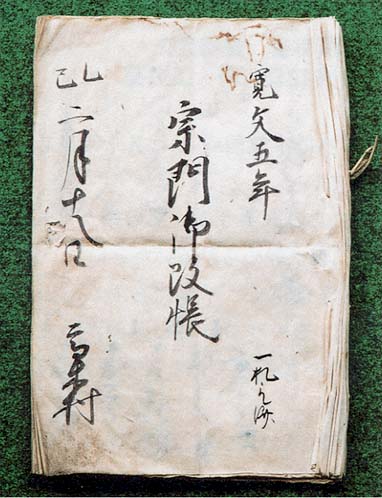 寛文五年
宗門御改帳
乙巳二月十八日
村